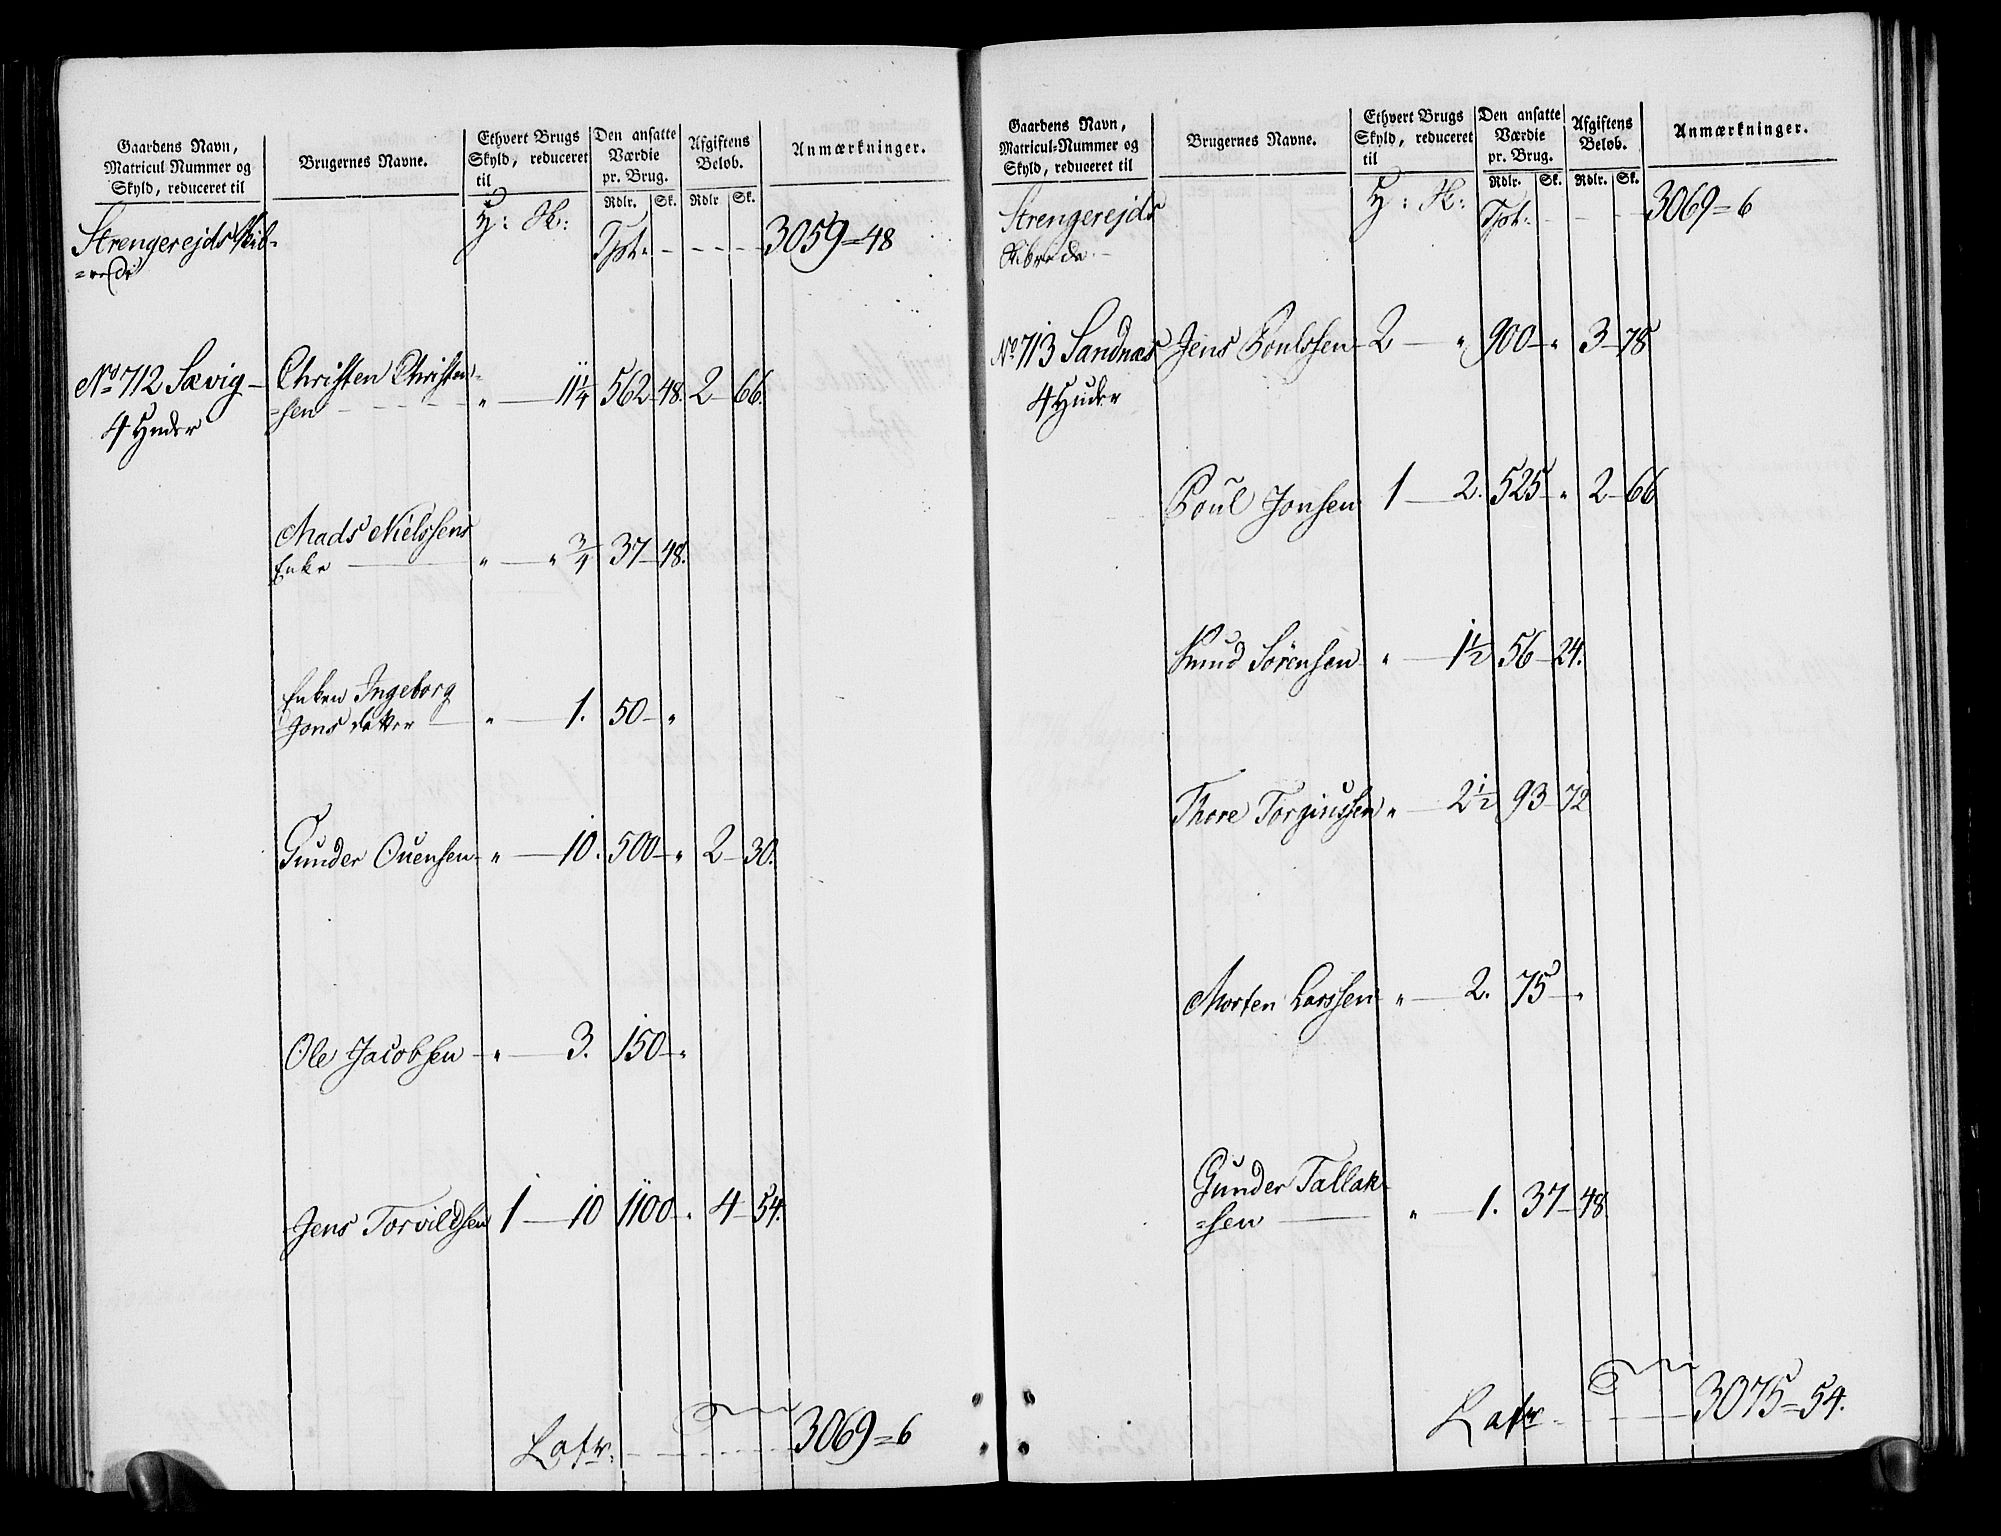 Gaardens Navn,
Matricul Nummer og
Skyld, reduceret til
Brugernes Navne.
Ethvert Brugs
Skyld, reduceret
til
Den ansatte
Værdie
pr. Brug.
Rdlr. Sk.
Afgiftens
Beløb.
Rdlr Sk.
Anmærkninger.
Strengereids Skib-
=rede
H: Sk:
Tpt. - - - - 3059=48
No 712 Sævig - Christen Christen-
=sen - - - - " - 11 1/4 562-48. 2-66.
4 Huder
Mads Nielssens
Enke - " - " 3/4 37-48.
Enken Ingeborg
Jons datter - " - 1. 50- "
Gunder Ouensen - " - 10. 500- " 2-30.
Ole Jacobsen - " - 3. 150- "
Jens Torvildsen 1 - 10 1100- " 4-54.
Latr. - - - - 3069=6
Gaardens Navn,
Matricul-Nummer og
Skyld, reduceret til
Brugernes Navne.
Ethvert Brugs
Skyld, reduceret
til
Den ansatte
Værdie
pr. Brug.
Rdlr. Sk.
Afgiftens
Beløb.
Rdlr. Sk.
Anmærkninger.
Strengereids
Skibrede. -
H: Sk:
Tpt. - - - - 3069=6
No 713 Sandnæs Jens Poulssen 2 - " 900- " 3-78
4 Huder
Poul Jonsen 1 - 2. 525- " 2-66
Knud Sørensen " - 1 1/2 56-24.
Thore Torginssen " - 2 1/2 93-72
Morten Larssen " - 2. 75- "
Gunder Tallak-
=sen - " - 1. 37-48
Latr. - - - 3075=54.